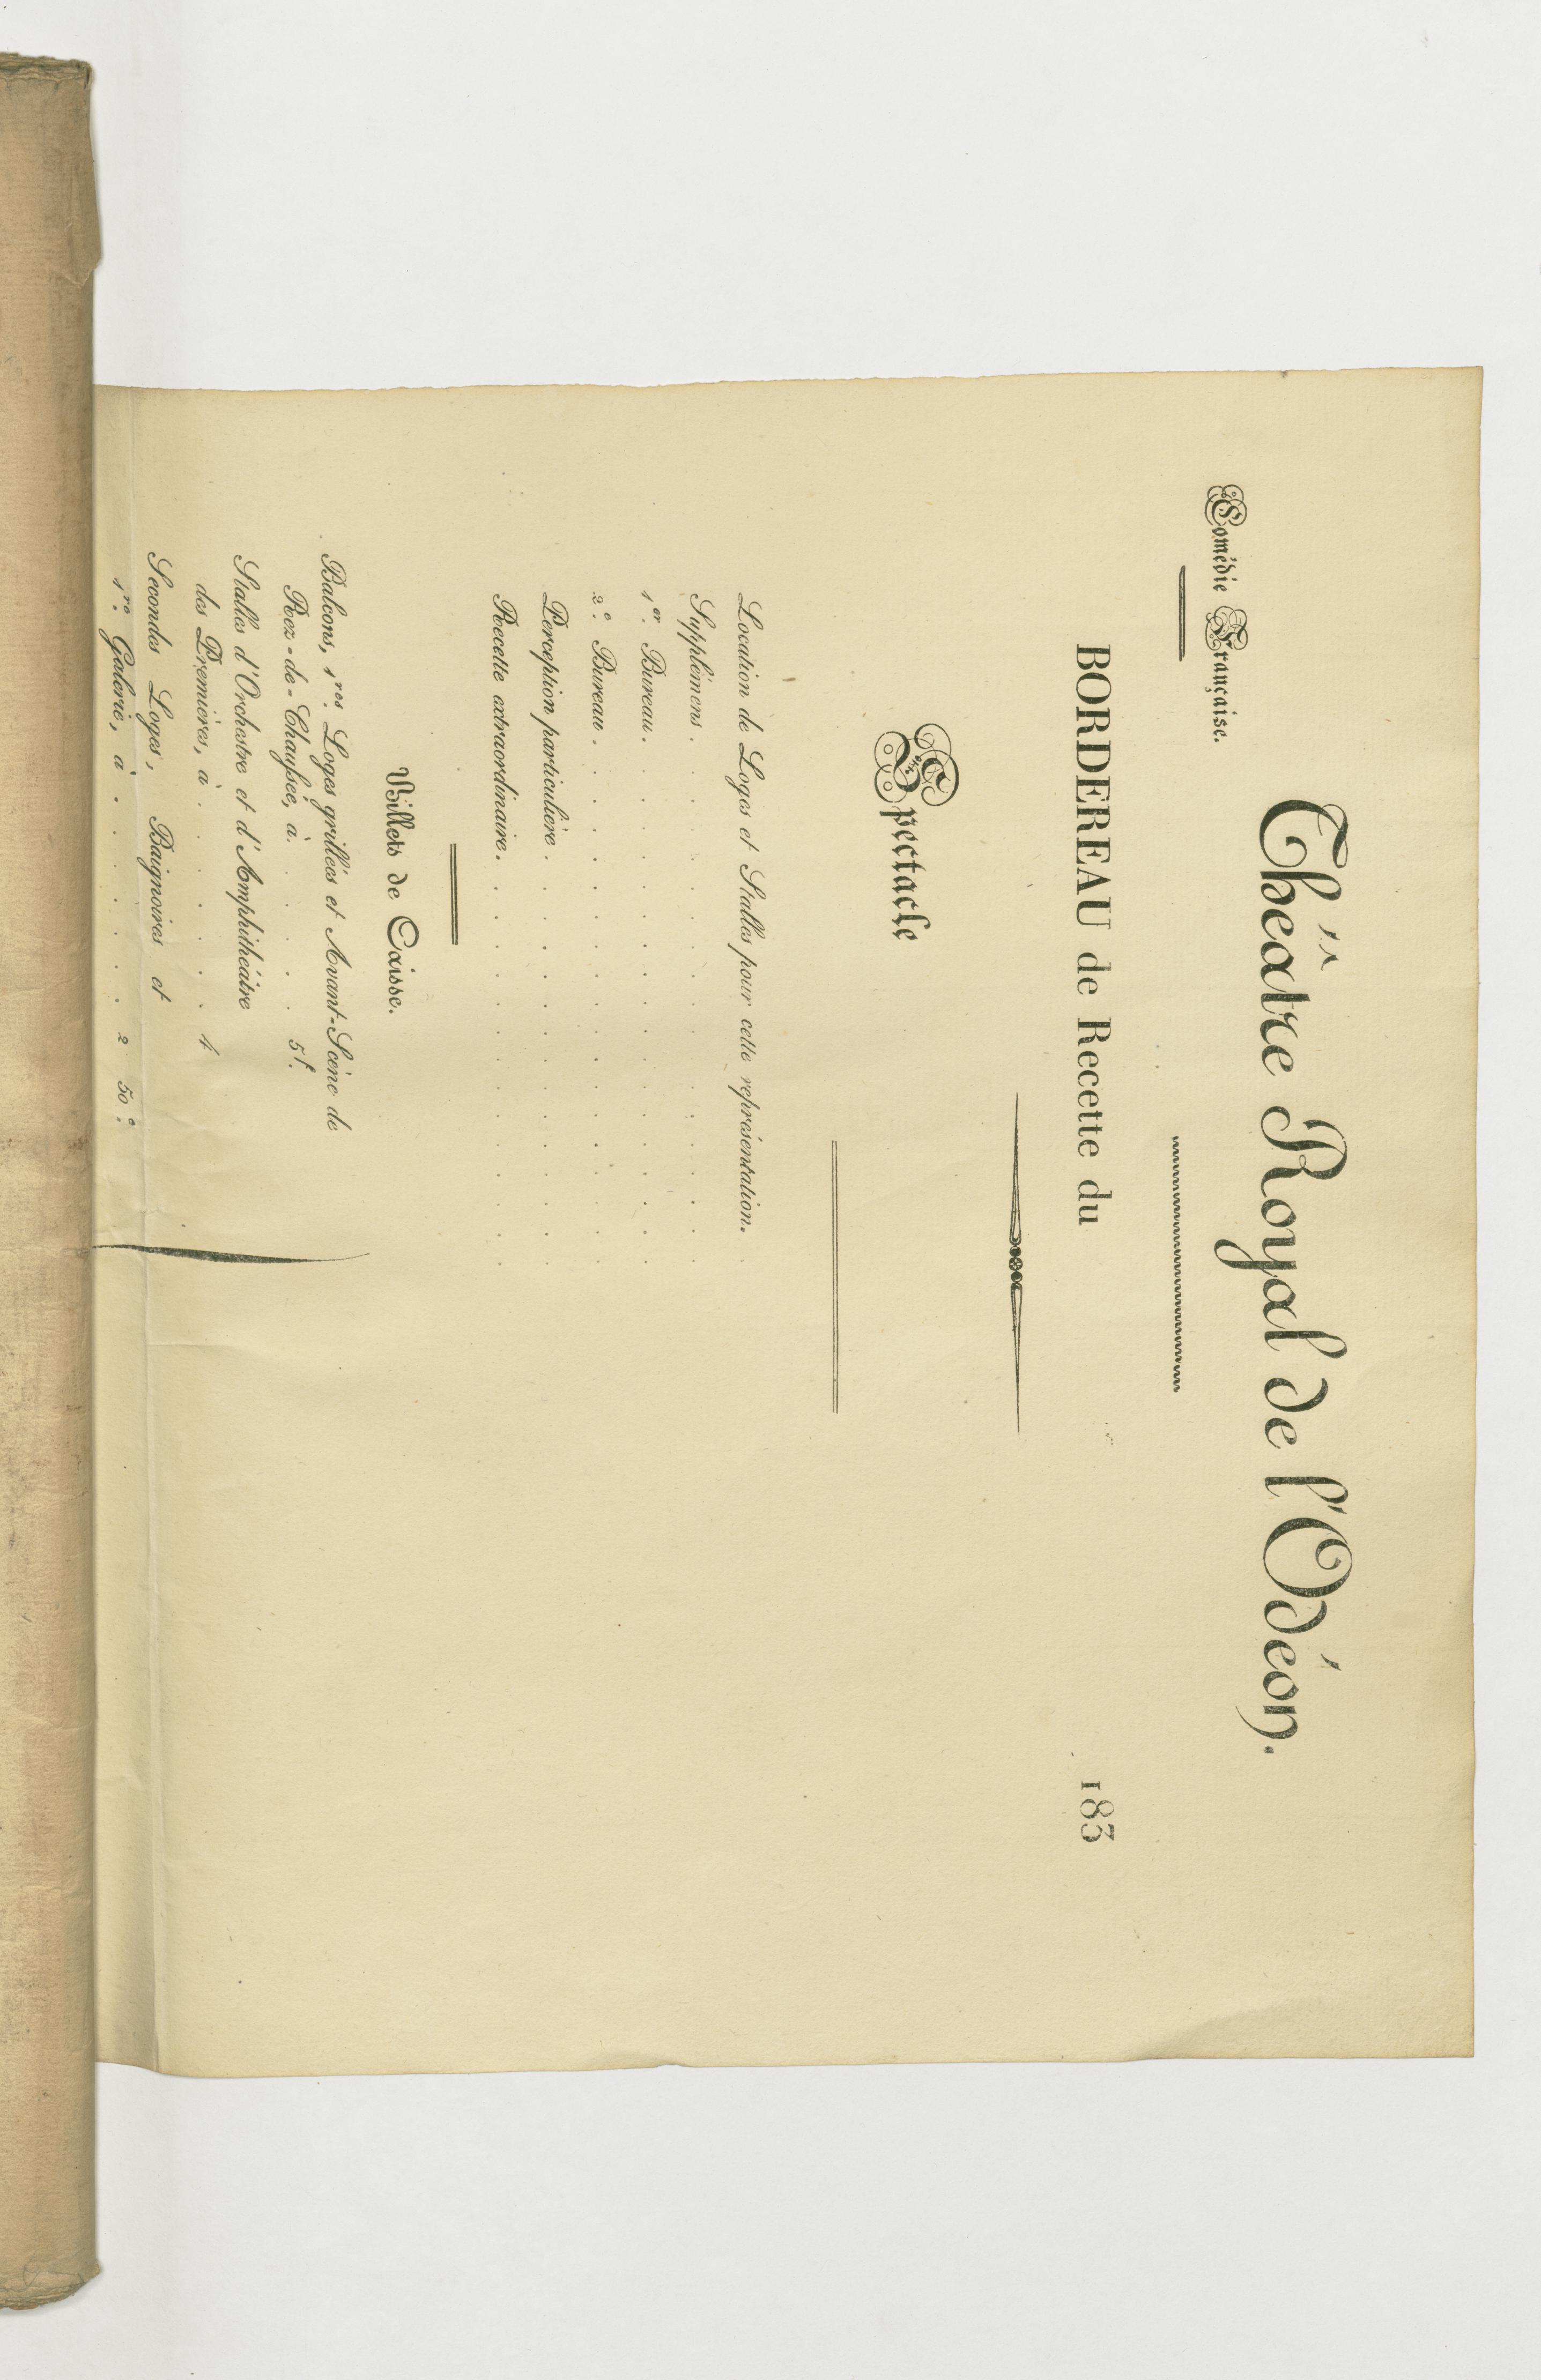 Théâtre Royal de l'Odéon.
Comédie Française.
BORDEREAU de Recette du 183
Spectacle
Location de Loges et Stalles pour cette représentation.
Supplémens . . . . . . . . . .
1er. Bureau. . . . . . . . . .
2e. Bureau . . . . . . . . . .
Perception particulière . . . . . . . .
Recette extraordinaire. . . . . . . . .
Billets de Caisse.
Balcons, 1res. Loges grillées et Avant-Scène de
Rez-de-Chaussée, à . . . . . 5f.
Stalles d'Orchestre et d'Amphithéâtre
des Premières, à . . . . . . 4
Secondes Loges, Baignoires et
1re. Galerie, à . . . . . . . 2 50c.